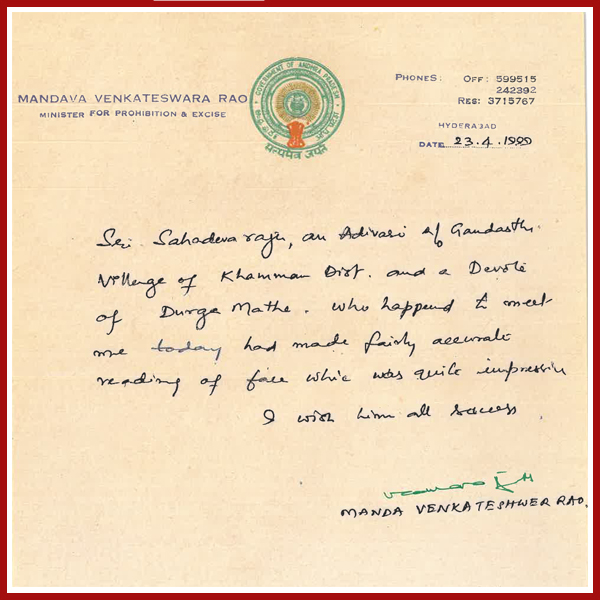 MANDAVA VENKATESWARA RAO
MINISTER FOR PROHIBITION & EXCISE
GOVERNMENT OF ANDHRA PRADESH
सत्यमेव जयते
PHONES: OFF: 599515
242392
RES: 3715767
HYDERABAD
DATE 23.4.1999
Sri. Sahadevaraju, an Adivasi of
Village of Khammam Dist. and a Devote
of Durga Mathe. who happend to meet
me today had made fairly accurate
reading of face which was quite impressive
I wish him all success
MANDA VENKATESHWER RAO.